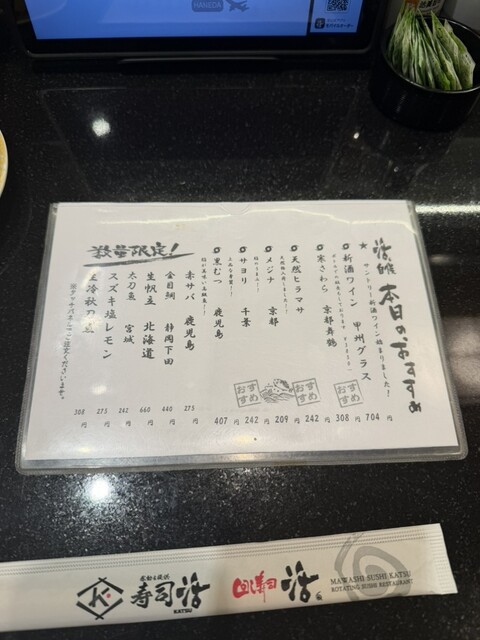 HANEDA
活
自慢
本日のおすすめ
サントリー新酒ワイン始まりました!
★新酒ワイン 甲州グラス
704円
寒さわら 京都舞鶴
308円
天然ヒラマサ
242円
メジナ 京都
209円
サヨリ 千葉
242円
黒むつ 鹿児島
407円
おすすめ
おすすめ
おすすめ
数量限定!
赤サバ 鹿児島
275円
金目鯛 静岡下田
440円
生帆立 北海道
660円
太刀魚 宮城
242円
スズキ塩レモン
275円
生冷秋刀魚
308円
※タッチパネルよりご注文くださいませ。
寿司 活
KATSU
回し寿司 活
MAWASHI SUSHI KATSU
ROTATING SUSHI RESTAURANT